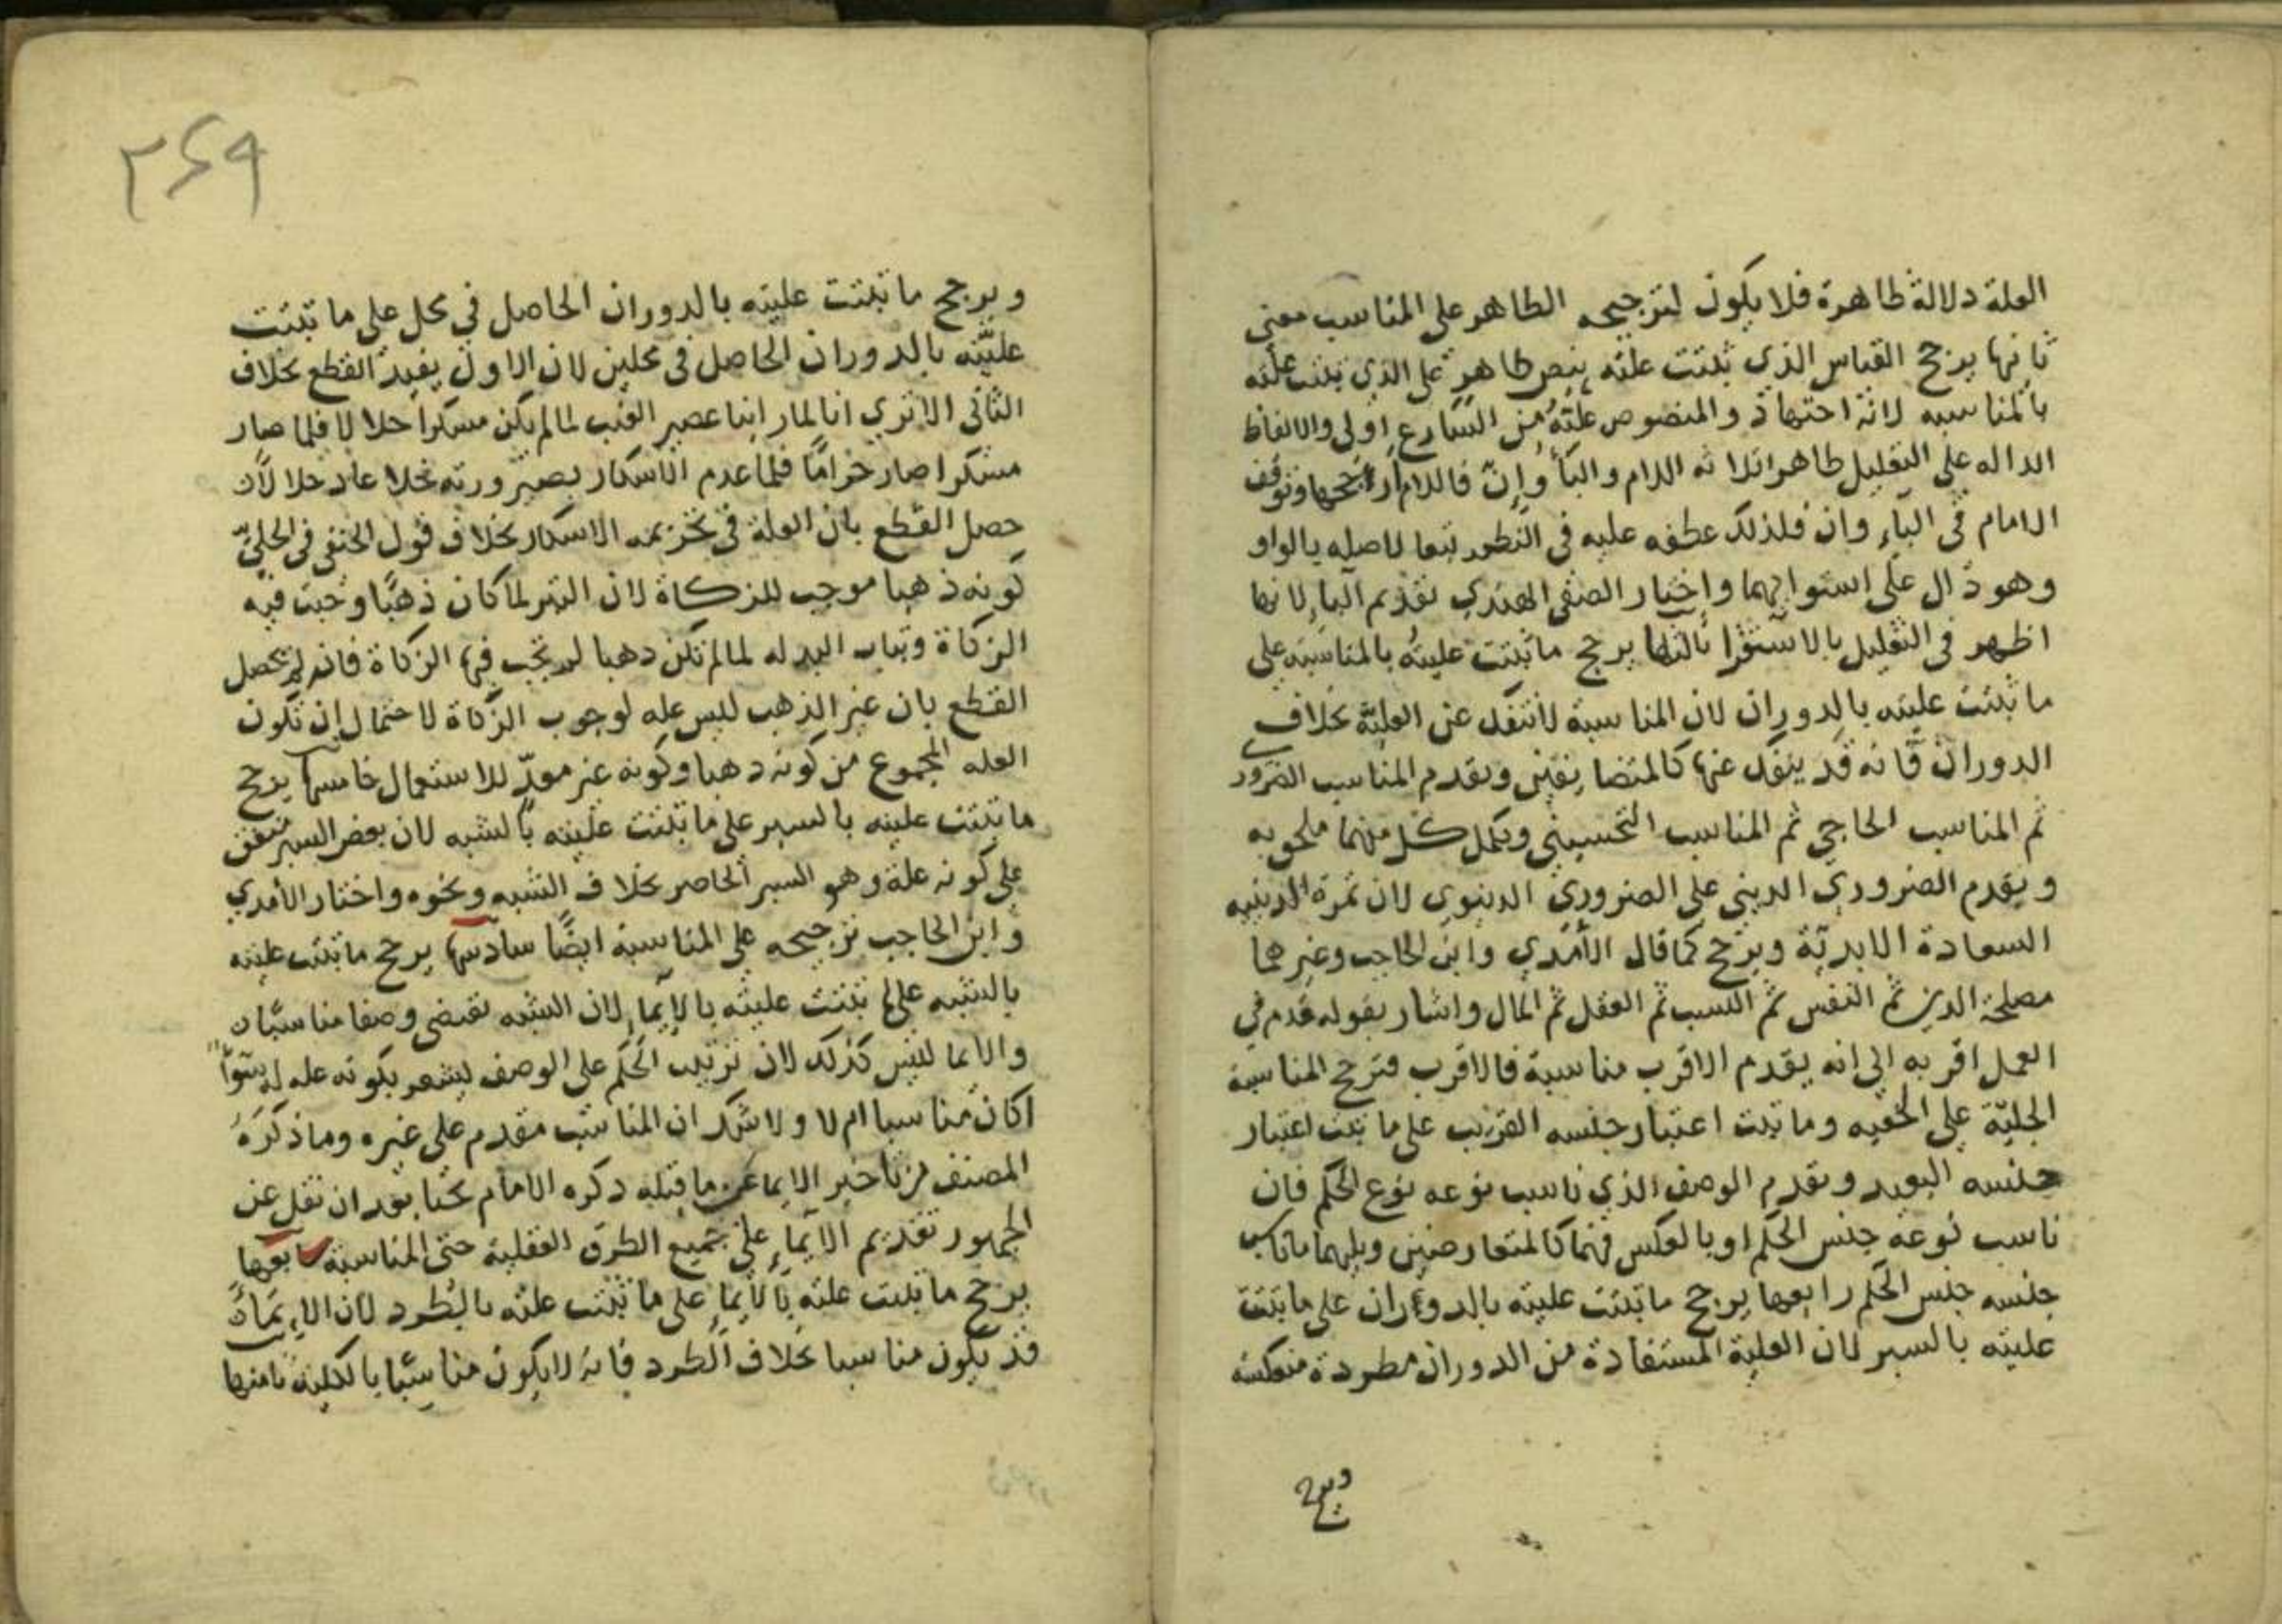 العلة دلالة ظاهرة فلا يكون لترجيحه الظاهر على المناسب معنى
ثانيها يرجح القياس الذي ثبتت علته بنص ظاهر على الذي ثبتت علته
بالمناسبه لانه اجتهاد والمنصوص علته من الشارع اولى والالفاظ
الداله على التعليل ظاهرا ثلاثه اللام والبأ وإن فاللام ارجحها وتوقف
الامام في البآء وان فلذلك عطفه عليه في النظم تبعا لاصله بالواو
وهو دال على استوائهما واختار الصفي الهندي تقديم البآء لانها
اظهر في التعليل بالاستقرا ثالثها يرجح ما ثبتت عليته بالمناسبة على
ما ثبتت عليته بالدوران لان المناسبة لا تنفك عن العلية بخلاف
الدوران فانه قد ينفك عنها كالمتضايفين ويقدم المناسب الضروري
ثم المناسب الحاجي ثم المناسب التحسيني ومكمل كل منهما ملحق به
ويقدم الضروري الديني على الضروري الدنيوي لان ثمرة الدينيه
السعادة الابدية ويرجح كما قال الأمدي وابن الحاجب وغيرهما
مصلحة الدين ثم النفس ثم النسب ثم العقل ثم المال واشار بقوله قدم في
العمل اقربه الى انه يقدم الاقرب مناسبة فالاقرب فترجح المناسبة
الجلية على الخفيه وما ثبت اعتبار جنسه القريب على ما ثبت اعتبار
جنسه البعيد ويقدم الوصف الذي ناسب نوعه نوع الحكم فان
ناسب نوعه جنس الحكم او بالعكس فهما كالمتعارضين ويليهما ما ناسب
جنسه جنس الحكم رابعها يرجح ما ثبتت عليته بالدوران على ما ثبتت
عليته بالسبر لان العلية المستفادة من الدوران مطردة منعكسة
ويرجح
٢٦٩
ويرجح ما ثبتت عليته بالدوران الحاصل في محل على ما ثبتت
عليته بالدوران الحاصل في محلين لان الاول يفيد القطع بخلاف
الثاني الا ترى انا لما راينا عصير العنب لما لم يكن مسكرا حلالا فلما صار
مسكرا صار حراما فلما عدم الاسكار بصيرورته خلا عاد حلالان
حصل القطع بان العلة في تحريمه الاسكار بخلاف قول الحنفي في الحلي
كونه ذهبا موجب للزكاة لان التبر لما كان ذهبا وجبت فيه
الزكاة وثياب البذله لما لم تكن ذهبا لم تجب فيها الزكاة فانه لم يحصل
القطع بان غير الذهب ليس عله لوجوب الزكاة لاحتمال ان تكون
العله المجموع من كونه ذهبا وكونه غير معد للاستعمال خامسها يرجح
ما ثبتت عليته بالسبر على ما ثبتت عليته بالشبه لان بعض السبر متفق
على كونه علة وهو السبر الحاصر بخلاف الشبه ونحوه واختار الأمدي
وابن الحاجب ترجيحه على المناسبة ايضا سادسها يرجح ما ثبتت عليته
بالشبه على ما ثبتت عليته بالايماء لان الشبه تقتضي وصفا مناسبا
والايما ليس كذلك لان ترتيب الحكم على الوصف يشعر بكونه عله له سوآ
اكان مناسبا ام لا ولا شك ان المناسب مقدم على غيره وما ذكره
المصنف من تأخير الايما عن ما قبله ذكره الامام بحثا بعد ان نقل عن
الجمهور تقديم الايماء على جميع الطرق العقلية حتى المناسبة سابعها
يرجح ما ثبتت علته بالايما على ما ثبتت علته بالطرد لان الايماء
قد يكون مناسبا بخلاف الطرد فانه لا يكون مناسبا بالكلية ثامنها